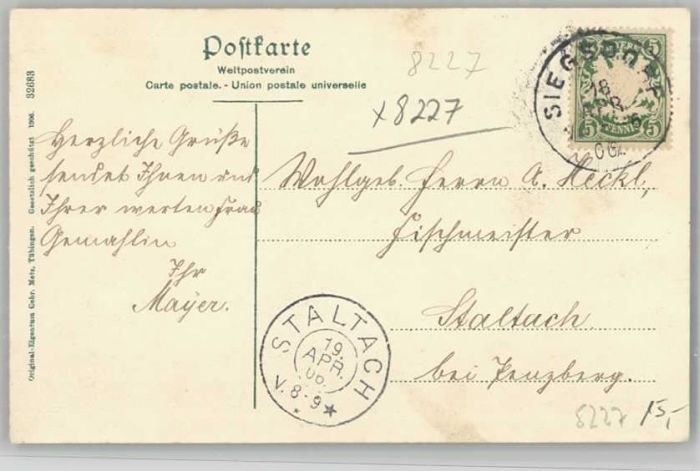 Postkarte
Weltpostverein
Carte postale. - Union postale universelle
32683
Gesetzlich geschützt 1906.
Original-Eigentum Gebr. Metz, Tübingen.
8227
x8227
SIEGSDORF
18
APR.
06.
5 5
PFENNIG
5 5
Herzliche Grüße
sendet Ihnen und
Ihrer werten Frau
Gemahlin
Ihr
Mayer.
Wohlgeb. Herrn A. Heckl,
Fischmeister
Staltach
bei Penzberg.
STALTACH
19.
APR.
06.
V. 8-9
8227 15,-